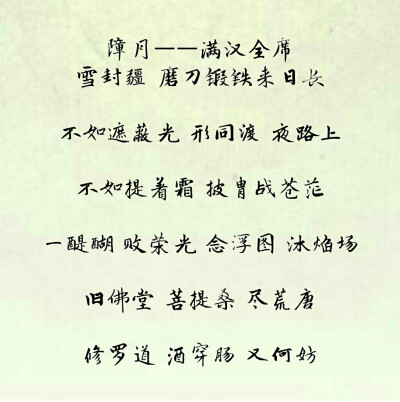 障月——满汉全席
雪封疆 磨刀锻铁来日长
不如遮蔽光 形同渡 夜路上
不如提着霜 披胄战苍茫
一醍醐 败荣光 念浮图 冰焰场
旧佛堂 菩提桑 尽荒唐
修罗道 酒穿肠 又何妨